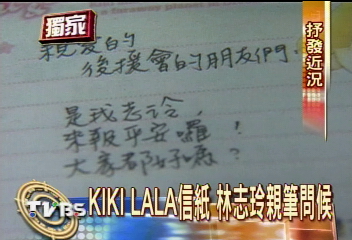 獨家
抒發近況
親愛的
後援會的朋友們
是我志玲
來報平安囉!
大家都好嗎?
TVBS
KIKI LALA信紙 林志玲親筆問候